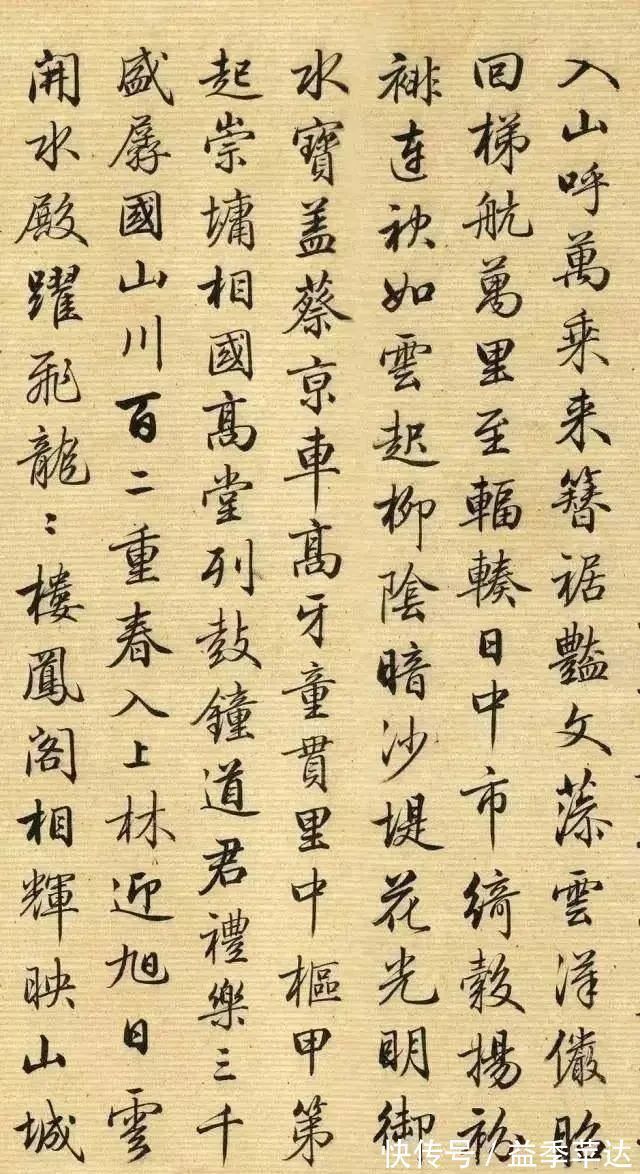 入山呼萬乘来簪裾豔文藻雲漢儼昭
回梯航萬里至輻輳日中市綺縠揚
裶連袂如雲起柳陰暗沙堤花光明御
水寶蓋蔡京車高牙童貫里中樞甲第
起崇墉相國高堂列鼓鐘道君禮樂三千
盛孱國山川百二重春入上林迎旭日雲
開水殿躍飛龍〻樓鳳閣相輝映山城
快传号/益季苹达